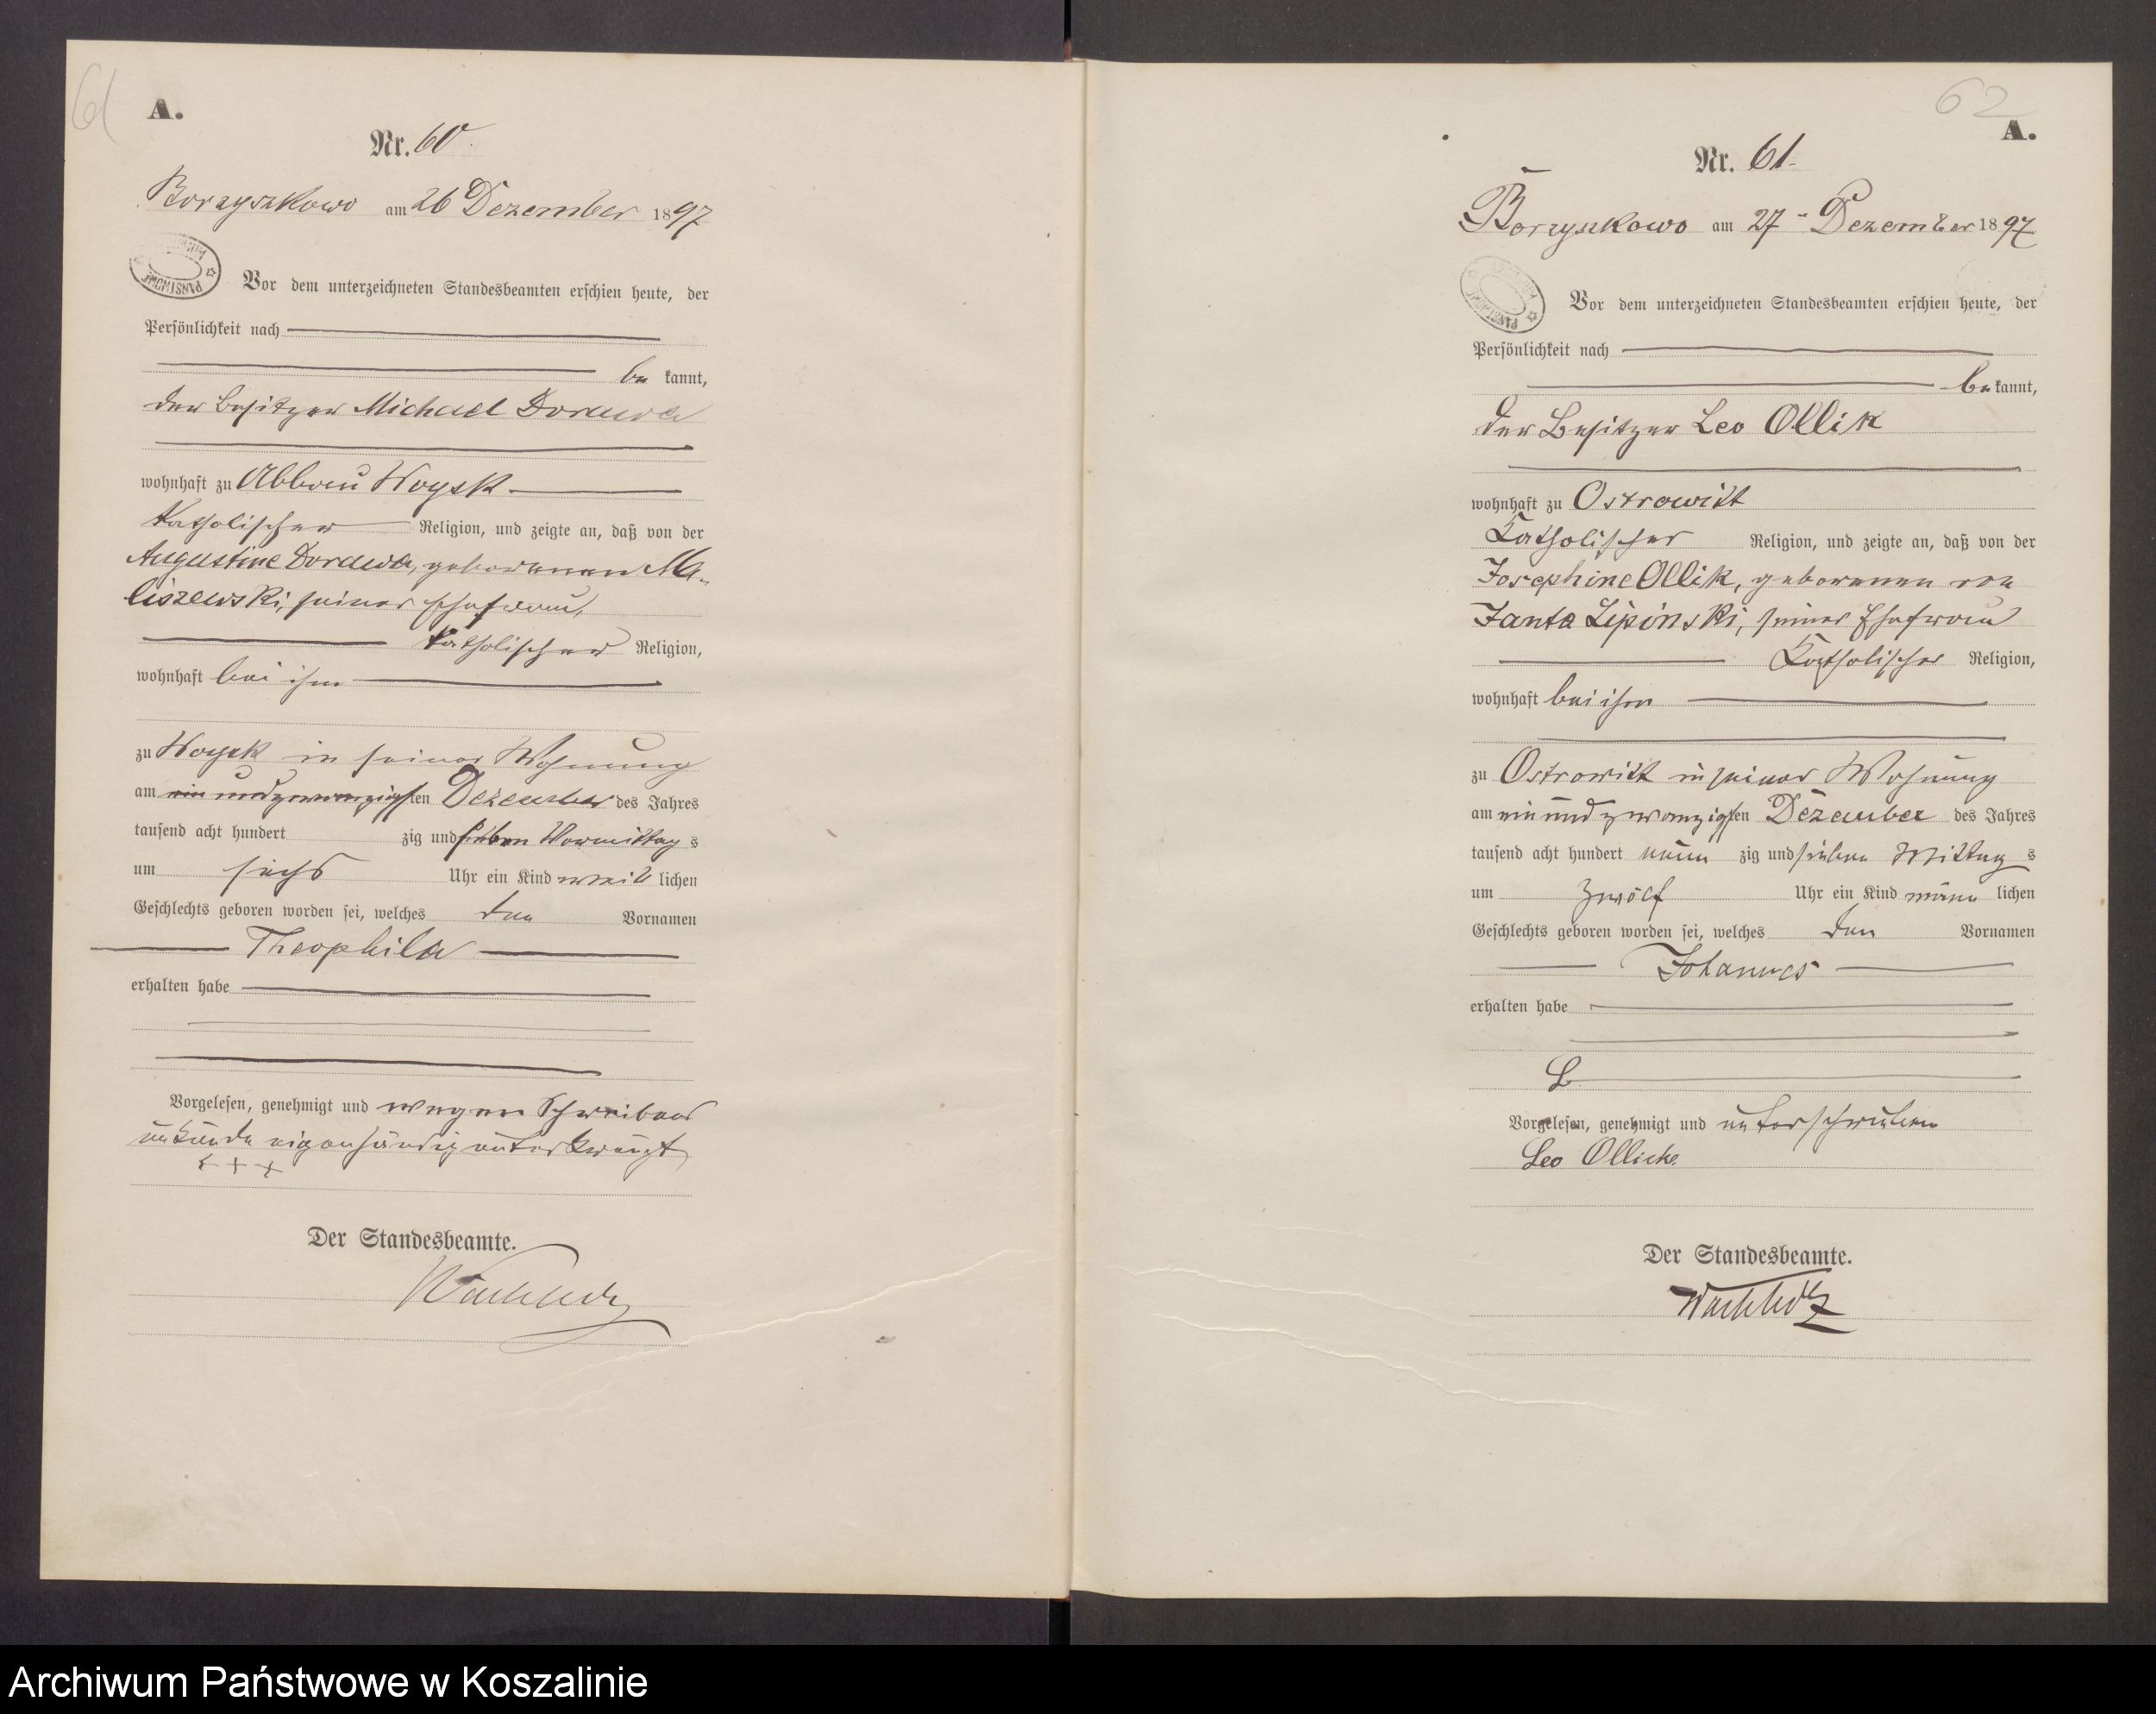 61
A.
Nr. 60
Borzyszkowo am 26 Dezember 1897
Vor dem unterzeichneten Standesbeamten erschien heute, der
Persönlichkeit nach
be kannt,
der Besitzer Michael Dorawa
wohnhaft zu Abbau Woysk
katholischer Religion, und zeigte an, daß von der
Augustine Dorawa, geborenen Ma-
liszewski, seiner Ehefrau,
katholischer Religion,
wohnhaft bei ihm
zu Woysk in seiner Wohnung
am ein und zwanzigsten Dezember des Jahres
tausend acht hundert zig und sieben Vormittag s
um sechs Uhr ein Kind weib lichen
Geschlechts geboren worden sei, welches den Vornamen
Theophila
erhalten habe
Vorgelesen, genehmigt und wegen Schreibens
unkunde eigenhändig unterkreuzt
+ + +
Der Standesbeamte.
Wachholz
62
A.
Nr. 61
Borzyszkowo am 27 Dezember 1897
Vor dem unterzeichneten Standesbeamten erschien heute, der
Persönlichkeit nach
be kannt,
der Besitzer Leo Ollik
wohnhaft zu Ostrowitt
katholischer Religion, und zeigte an, daß von der
Josephine Ollik, geborenen von
Janta Lipinski, seiner Ehefrau
katholischer Religion,
wohnhaft bei ihm
zu Ostrowitt in seiner Wohnung
am ein und zwanzigsten Dezember des Jahres
tausend acht hundert neun zig und sieben Mittag s
um zwölf Uhr ein Kind männ lichen
Geschlechts geboren worden sei, welches den Vornamen
Johannes
erhalten habe
Vorgelesen, genehmigt und unterschrieben
Leo Ollick
Der Standesbeamte.
Wachholz
Archiwum Państwowe w Koszalinie